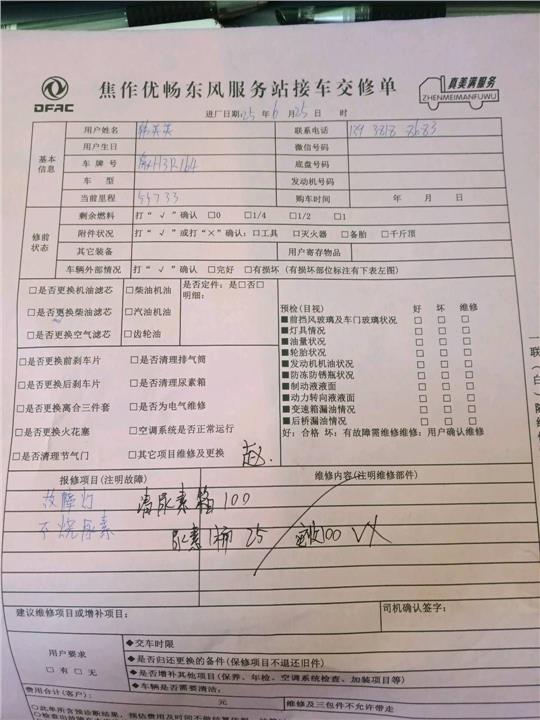 DFAC
焦作优畅东风服务站接车交修单
真美满服务
ZHENMEIMANFUWU
进厂日期:25年6月25日 时
基本信息
用户姓名 联系电话
用户生日 微信号码
车牌号 底盘号码
车型 发动机号码
当前里程 55733 购车时间 年 月 日
修前状态
剩余燃料 打“√”确认 □0 □1/4 □1/2 □1
附件状况 打“√”或打“×”确认:□工具 □灭火器 □备胎 □千斤顶
其它装备 用户寄存物品
车辆外部情况 打“√”确认 □完好 □有损坏(有损坏部位标注有下表左图)
□是否更换机油滤芯 □柴油机油 是否定件:是□否□
明细:
□是否更换柴油滤芯 □汽油机油
□是否更换空气滤芯 □齿轮油
□是否更换前刹车片 □是否清理排气筒
□是否更换后刹车片 □是否清理尿素箱
□是否更换离合三件套 □是否为电气维修
□是否更换火花塞 □空调系统是否正常运行
□是否清理节气门 □其它项目维修及更换
赵.
预检(目视) 好 坏 维修
■前挡风玻璃及车门玻璃状况 □ □ □
■灯具情况 □ □ □
■油量状况 □ □ □
■轮胎状况 □ □ □
■发动机机油状况 □ □ □
■防冻防锈瓶状况 □ □ □
■制动液液面 □ □ □
■动力转向液液面 □ □ □
■变速箱漏油情况 □ □ □
■后桥漏油情况 □ □ □
好:合格 坏:有故障需维修维修:用户确认维修
报修项目(注明故障) 维修内容(注明维修部件)
故障灯 清尿素箱100
不烧尿素 尿素1桶 25 VX
建议维修项目或增补项目: 司机确认签字:
用户要求
□有 □无
◆交车时限
◆是否归还更换的备件(保修项目不退还旧件)
◆是否增补其他项目(保养、年检、空调系统检查、加装项目等)
◆车辆是否需要清洁:
费用合计(客户): 元 维修及三包件不允许带走